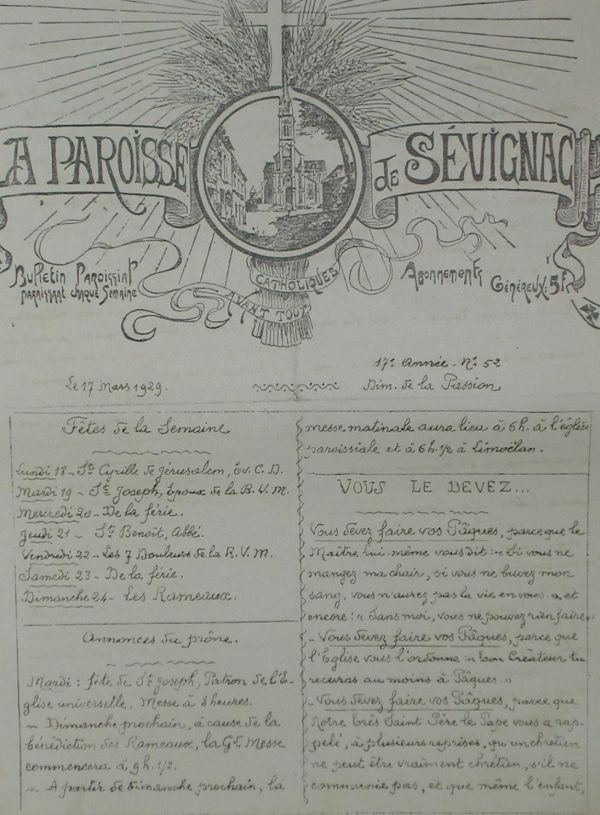 LA PAROISSE
de SÉVIGNAC
Bulletin Paroissial
paraissant chaque Semaine
CATHOLIQUES
AVANT TOUT
Abonnements
Généreux: 5F.
17e Année - No 52
Le 17 Mars 1929.
Dim. de la Passion
Fêtes de la Semaine
Lundi 18 - St Cyrille de Jérusalem, Ev. C. D.
Mardi 19 - St Joseph, Epoux de la B. V. M.
Mercredi 20 - De la férie.
Jeudi 21 - St Benoît, Abbé.
Vendredi 22 - Les 7 Douleurs de la B. V. M.
Samedi 23 - De la férie.
Dimanche 24 - Les Rameaux.
Annonces du prône.
Mardi : fête de St Joseph, Patron de l'E-
glise universelle, Messe à 8 heures.
- Dimanche prochain, à cause de la
bénédiction des Rameaux, la Gd Messe
commencera à 9h. 1/2.
- A partir de Dimanche prochain, la
messe matinale aura lieu à 6h. à l'église
paroissiale et à 6h. 1/2 à Limoëlan.
VOUS LE DEVEZ...
Vous devez faire vos Pâques, parce que le
Maître lui-même vous dit : « Si vous ne
mangez ma chair, si vous ne buvez mon
sang, vous n'aurez pas la vie en vous », et
encore : « Sans moi, vous ne pouvez rien faire »
- Vous devez faire vos Pâques, parce que
l'Eglise vous l'ordonne : « Ton Créateur tu
recevras au moins à Pâques. »
- Vous devez faire vos Pâques, parce que
Notre Très Saint Père le Pape vous a rap-
pelé, à plusieurs reprises, qu'un chrétien
ne peut être vraiment chrétien, s'il ne
communie pas, et que même l'enfant,